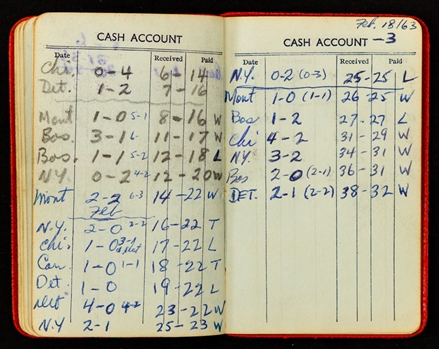 CASH ACCOUNT
Date Received Paid
Chi. 0-4 6-14
Det. 1-2 7-16
Mont 1-0 5-1 8-16 W
Bos. 3-1 11-17 W
Bos. 1-1 5-2 12-18 L
N.Y. 0-2 4-2 12-20 W
Mont 2-2 6-3 14-22 W
Feb
N.Y. 2-0 2-2 16-22 T
Chi. 1-0 17-22 L
Can. 1-0 1-1 18-22 T
Det. 1-0 19-22 L
Det 4-0 4-2 23-22 W
N.Y 2-1 25-23 W
Feb. 18/63
CASH ACCOUNT -3
Date Received Paid
N.Y. 0-2 (0-3) 25-25 L
Mont 1-0 (1-1) 26-25 W
Bos 1-2 27-27 L
Chi 4-2 31-29 W
NY. 3-2 34-31 W
Bos 2-0 (2-1) 36-31 W
DET. 2-1 (2-2) 38-32 W